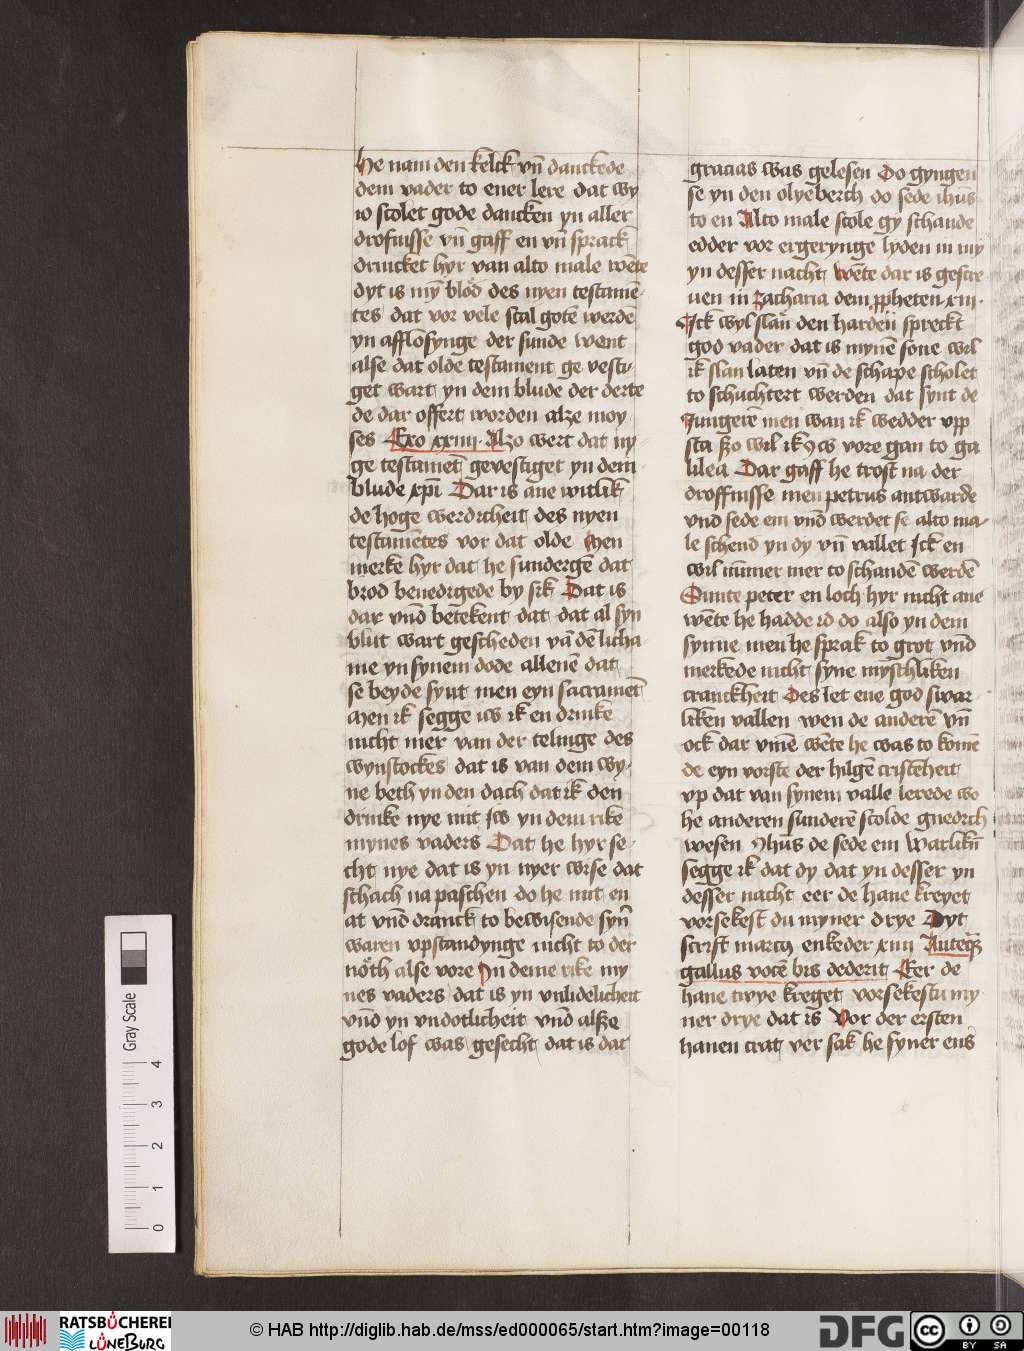 He nam den kelck vn̄ danckede
dem vader to ener lere dat wy
io scolet gode dancken yn aller
drofnisse vn̄ gaff en vn̄ sprack
drincket hyr van alto male wēte
dyt is mȳ blod des nyen testamē
tes dat vor vele scal gotē werdē
yn afflosynge der sunde went
alse dat olde testament ge vesti
get wart yn dem blude der derte
de dar offert worden alze moy
ses Exo xxiiii Alzo wert dat ny
ge testamēt gevestiget yn dem
blude xp̄i Dar is ane witlik
de hoge werdicheit des nyen
testamētes vor dat olde Men
merke hyr dat he sundergē dat
brod benedigede by sik Dat is
dar vnd betekent dat dat al syn
blut wart gescheden vā dē licha
me yn synem dode allenē dat
se beyde synt men eyn sacramēt
Men ik segge iw ik en drinke
nicht mer van der telinge des
wynstockes dat is van dem wy
ne beth yn den dach dat ik den
drinke nye mit iw yn dem rike
mynes vaders Dat he hyr se
cht nye dat is yn nyer wise dat
schach na paschen do he mit en
at vnd dranck to bewisende syn̄
waren vpstandynge nicht to der
noth alse vore In deme rike my
nes vaders dat is yn vnlidelicheit
vnd yn vndotlicheit vnd alße
gode lof was gesecht dat is dat
gracias was gelesen Do gyngen
se yn den olyeberch do sede ihūs
to en Alto male scole gy schande
edder vor ergerynge lyden in my
yn desser nacht wēte dar is gescre
uen in zacharia dem ppheten xiii
Ick wyl slan den harden spreckt
god vader dat is mynē sone wil
ik slan laten vn̄ de schape scholet
to schuchtert werden dat synt de
Jungerē men wan ik wedder vpp
sta ßo wil ik iw vore gan to ga
lilea Dar gaff he trost na der
droffnisse men petrus antwarde
vnd sede em vnd werdet se alto ma
le schend yn dy vn̄ vallet Ick en
wil nūmer mer to schandē werdē
Sunte peter en loch hyr nicht ane
wēte he hadde id do also yn dem
synne men he sprak to grot vnd
merkede nicht syne mȳschliken
cranckheit Des let ene god swar
liken vallen wen de anderē vn̄
ock dar vmē wēte he was to komē
de eyn vorste der hilgē cristēheit
vp dat van synem valle lerede wo
he anderen sunderē scolde gnedich
wesen Ihūs de sede em Warlikn̄
segge ik dat dy dat yn desser yn
desser nacht eer de hane kreyet
vorsekest du myner drye Dyt
scrift marcꝯ enkeder xiiii Anteqꝫ
gallus vocē bis dederit Eer de
hane twye kreget vorsekestu my
ner drye dat is Vor der ersten
hanen crat ver sak he syner ens
Gray Scale
0 1 2 3 4
RATSBÜCHEREI
LÜNEBURG
© HAB http://diglib.hab.de/mss/ed000065/start.htm?image=00118
DFG
cc BY SA